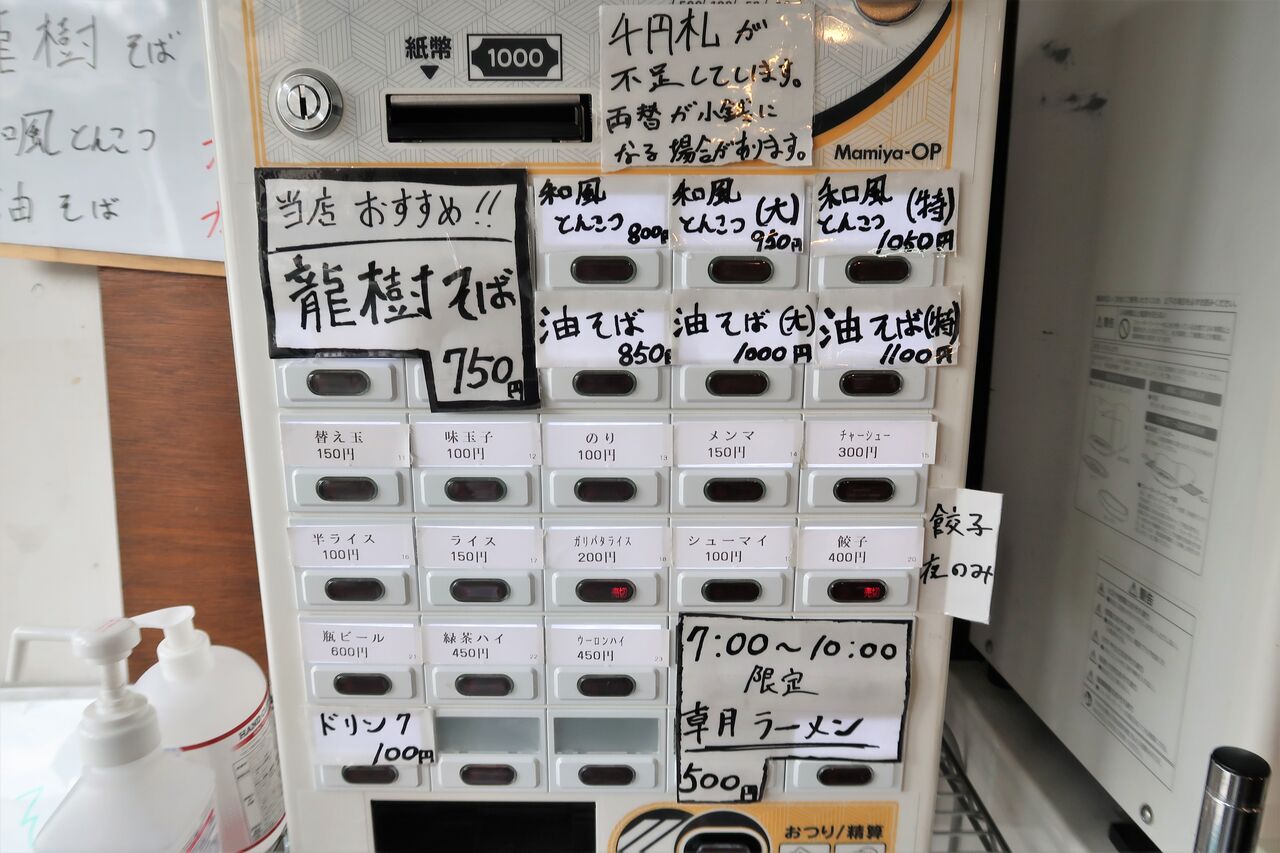 龍樹 そば
和風とんこつ
油そば
紙幣
1000
千円札が
不足してします。
両替が小銭に
なる場合があります。
Mamiya-OP
当店 おすすめ!!
龍樹そば
750円
和風
とんこつ 800円
和風
とんこつ (大)
950円
和風
とんこつ (特)
1050円
油そば
850円
油そば (大)
1000円
油そば (特)
1100円
替え玉
150円 11
味玉子
100円 12
のり
100円 13
メンマ
150円 14
チャーシュー
300円 15
半ライス
100円 16
ライス
150円 17
ガリバタライス
200円 18
売切
シューマイ
100円 19
餃子
400円 20
売切
餃子
夜のみ
瓶ビール
600円 21
緑茶ハイ
450円 22
ウーロンハイ
450円 23
7:00〜10:00
限定
朝ラーメン
500円
ドリンク
100円
おつり/精算
警告
警告